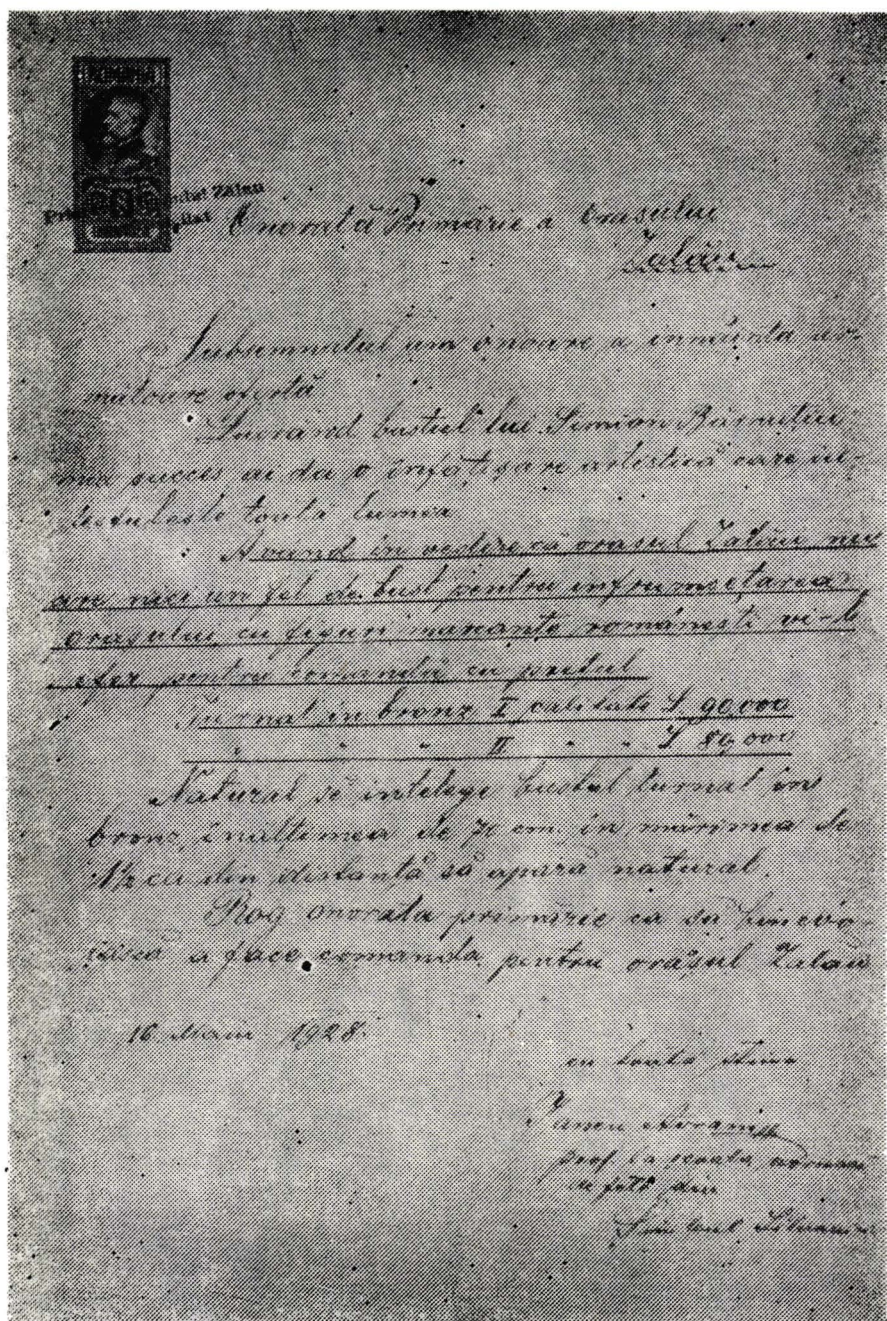 Onorată Primărie a Orasului
Zalău
Subsemnatul am onoare a inmânta ur-
mătoare ofertă
Lucrând bustul lui Simion Bărnuțiu
succes ai da o înfațișare artistică care
toată lumea
Avand in vedere că orasul Zalău nu
are nici un fel de bust pentru infrumsețarea
orașului cu figuri marcante românesti vi-l
ofer pentru comandă cu pretul
Turnat in bronz I calitate L 90,000
" " " II " " L 80,000
Natural se intelege bustul turnat în
bronz înultimea de 70 cm. in mărimea de
1½ cu din distanță să apară natural.
Rog onorata primărie ca să binevo-
iască a face comanda pentru orașul Zalau
16 Maiu 1928.
cu toată stima
Iancu Avram
prof. la scoala normală
de fete din
Simleul Silvaniei